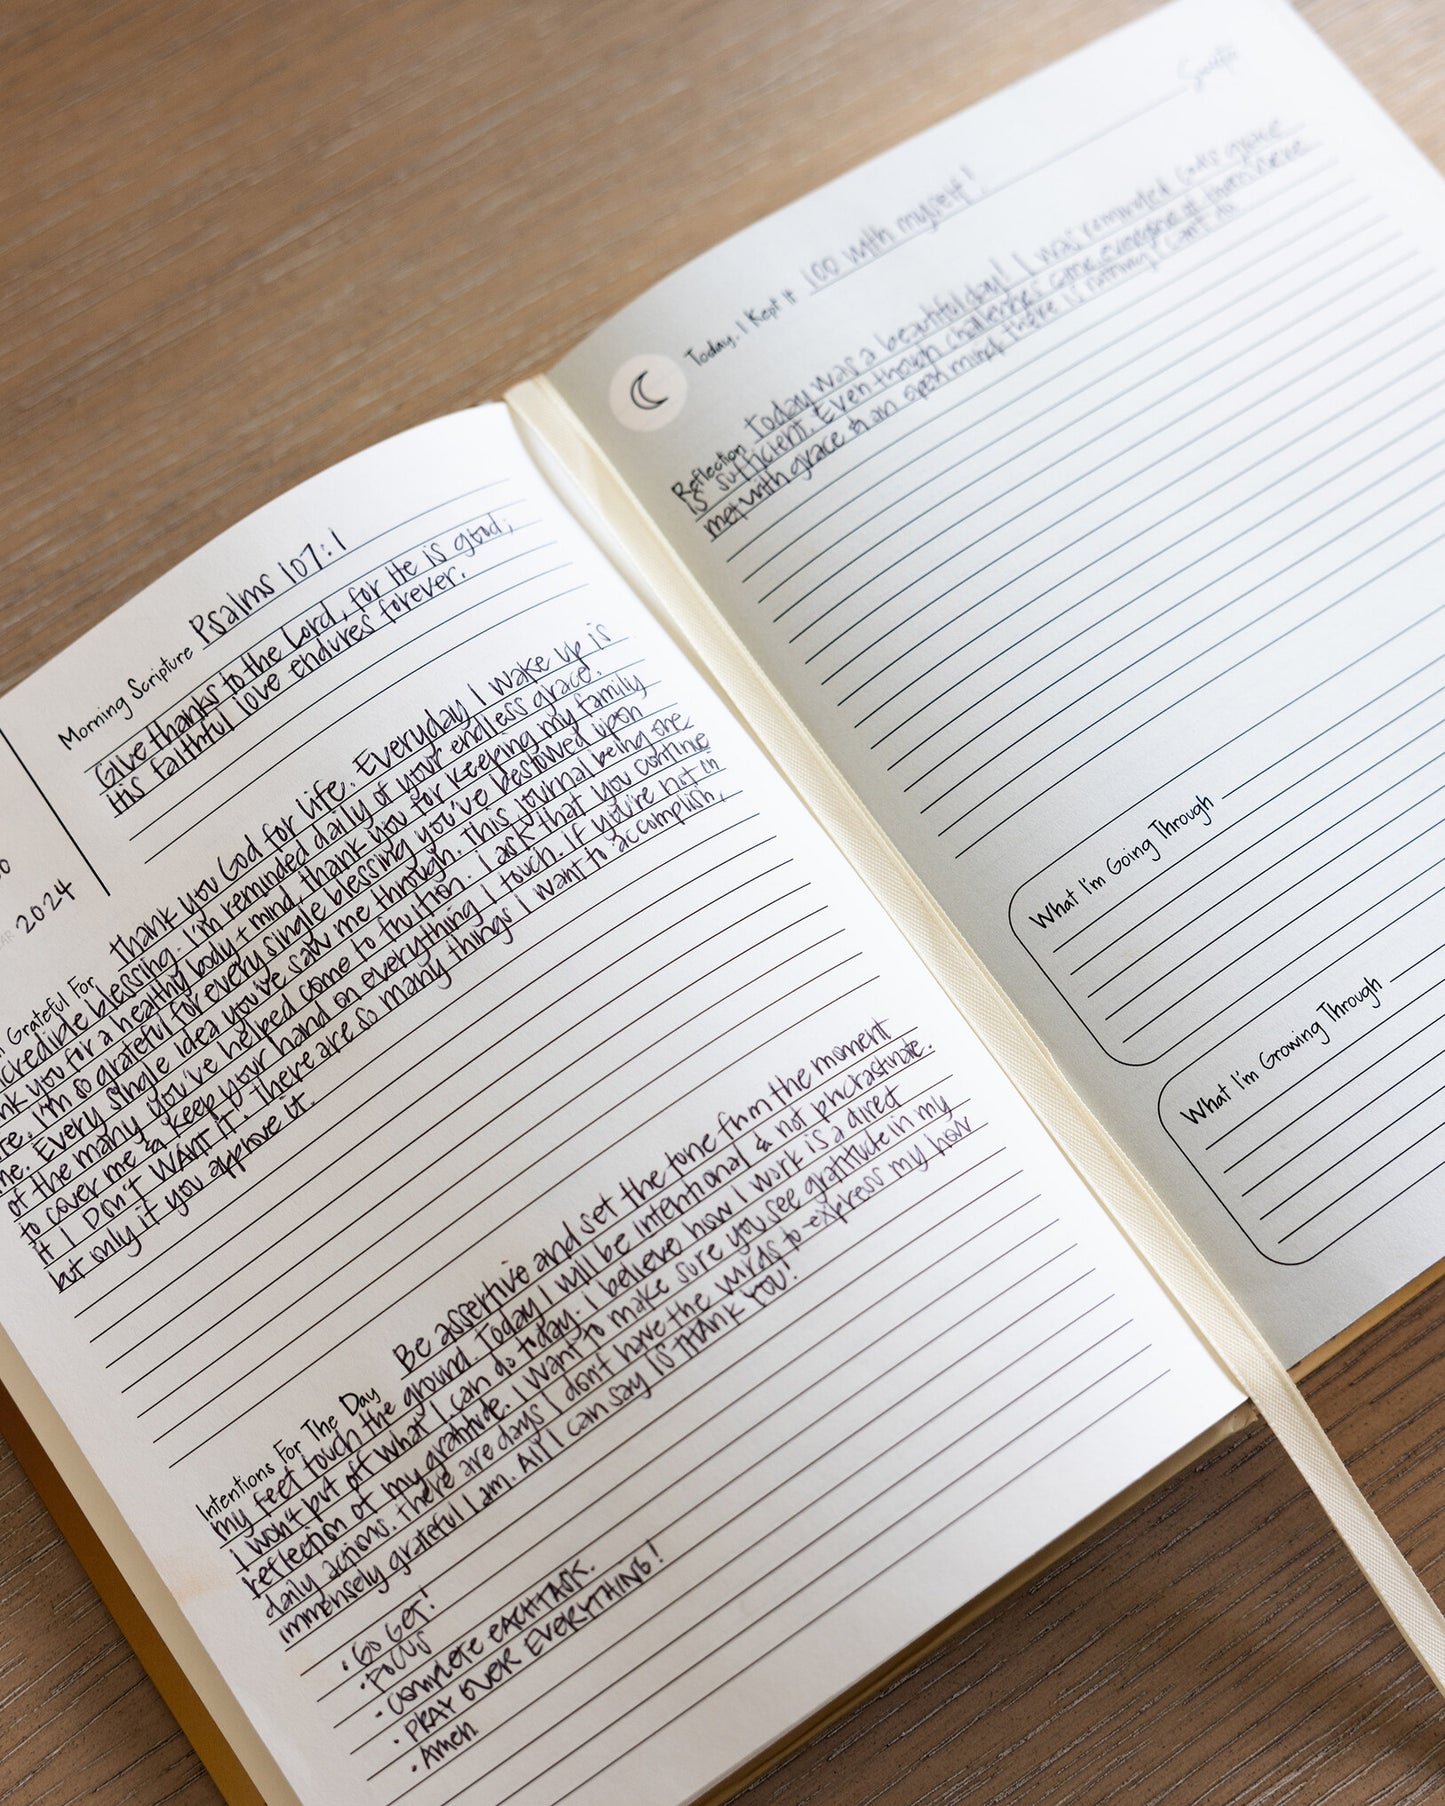 2024
Morning Scripture Psalms 107:1
Give thanks to the Lord, for He is good;
His faithful love endures forever.
Grateful For Thank you God for life. Everyday I wake up is
incredible blessing. I'm reminded daily of your endless grace.
you for a healthy body + mind, thank you for keeping my family
I'm so grateful for every single blessing you've bestowed upon
me. Every single idea you've saw me through. This journal being one
of the many you've helped come to fruition. I ask that you continue
to cover me & keep your hand on everything I touch. If you're not in
it I DON'T WANT IT. There are so many things I want to accomplish,
but only if you approve it.
Intentions For The Day Be assertive and set the tone from the moment
my feet touch the ground. Today I will be intentional & not procrastinate.
I won't put off what I can do today. I believe how I work is a direct
reflection of my gratitude. I want to make sure you see gratitude in my
daily actions. There are days I don't have the words to express my how
immensely grateful I am. All I can say IS THANK YOU!
• GO GET!
• FOCUS
• COMPLETE EACH TASK.
• PRAY OVER EVERYTHING!
• Amen
Today, I Kept It 100 with myself!
Reflection Today was a beautiful day! I was reminded God's grace
is sufficient. Even though challenges came, everyone of them were
met with grace & an open mind. There is nothing I can't do
What I'm Going Through
What I'm Growing Through